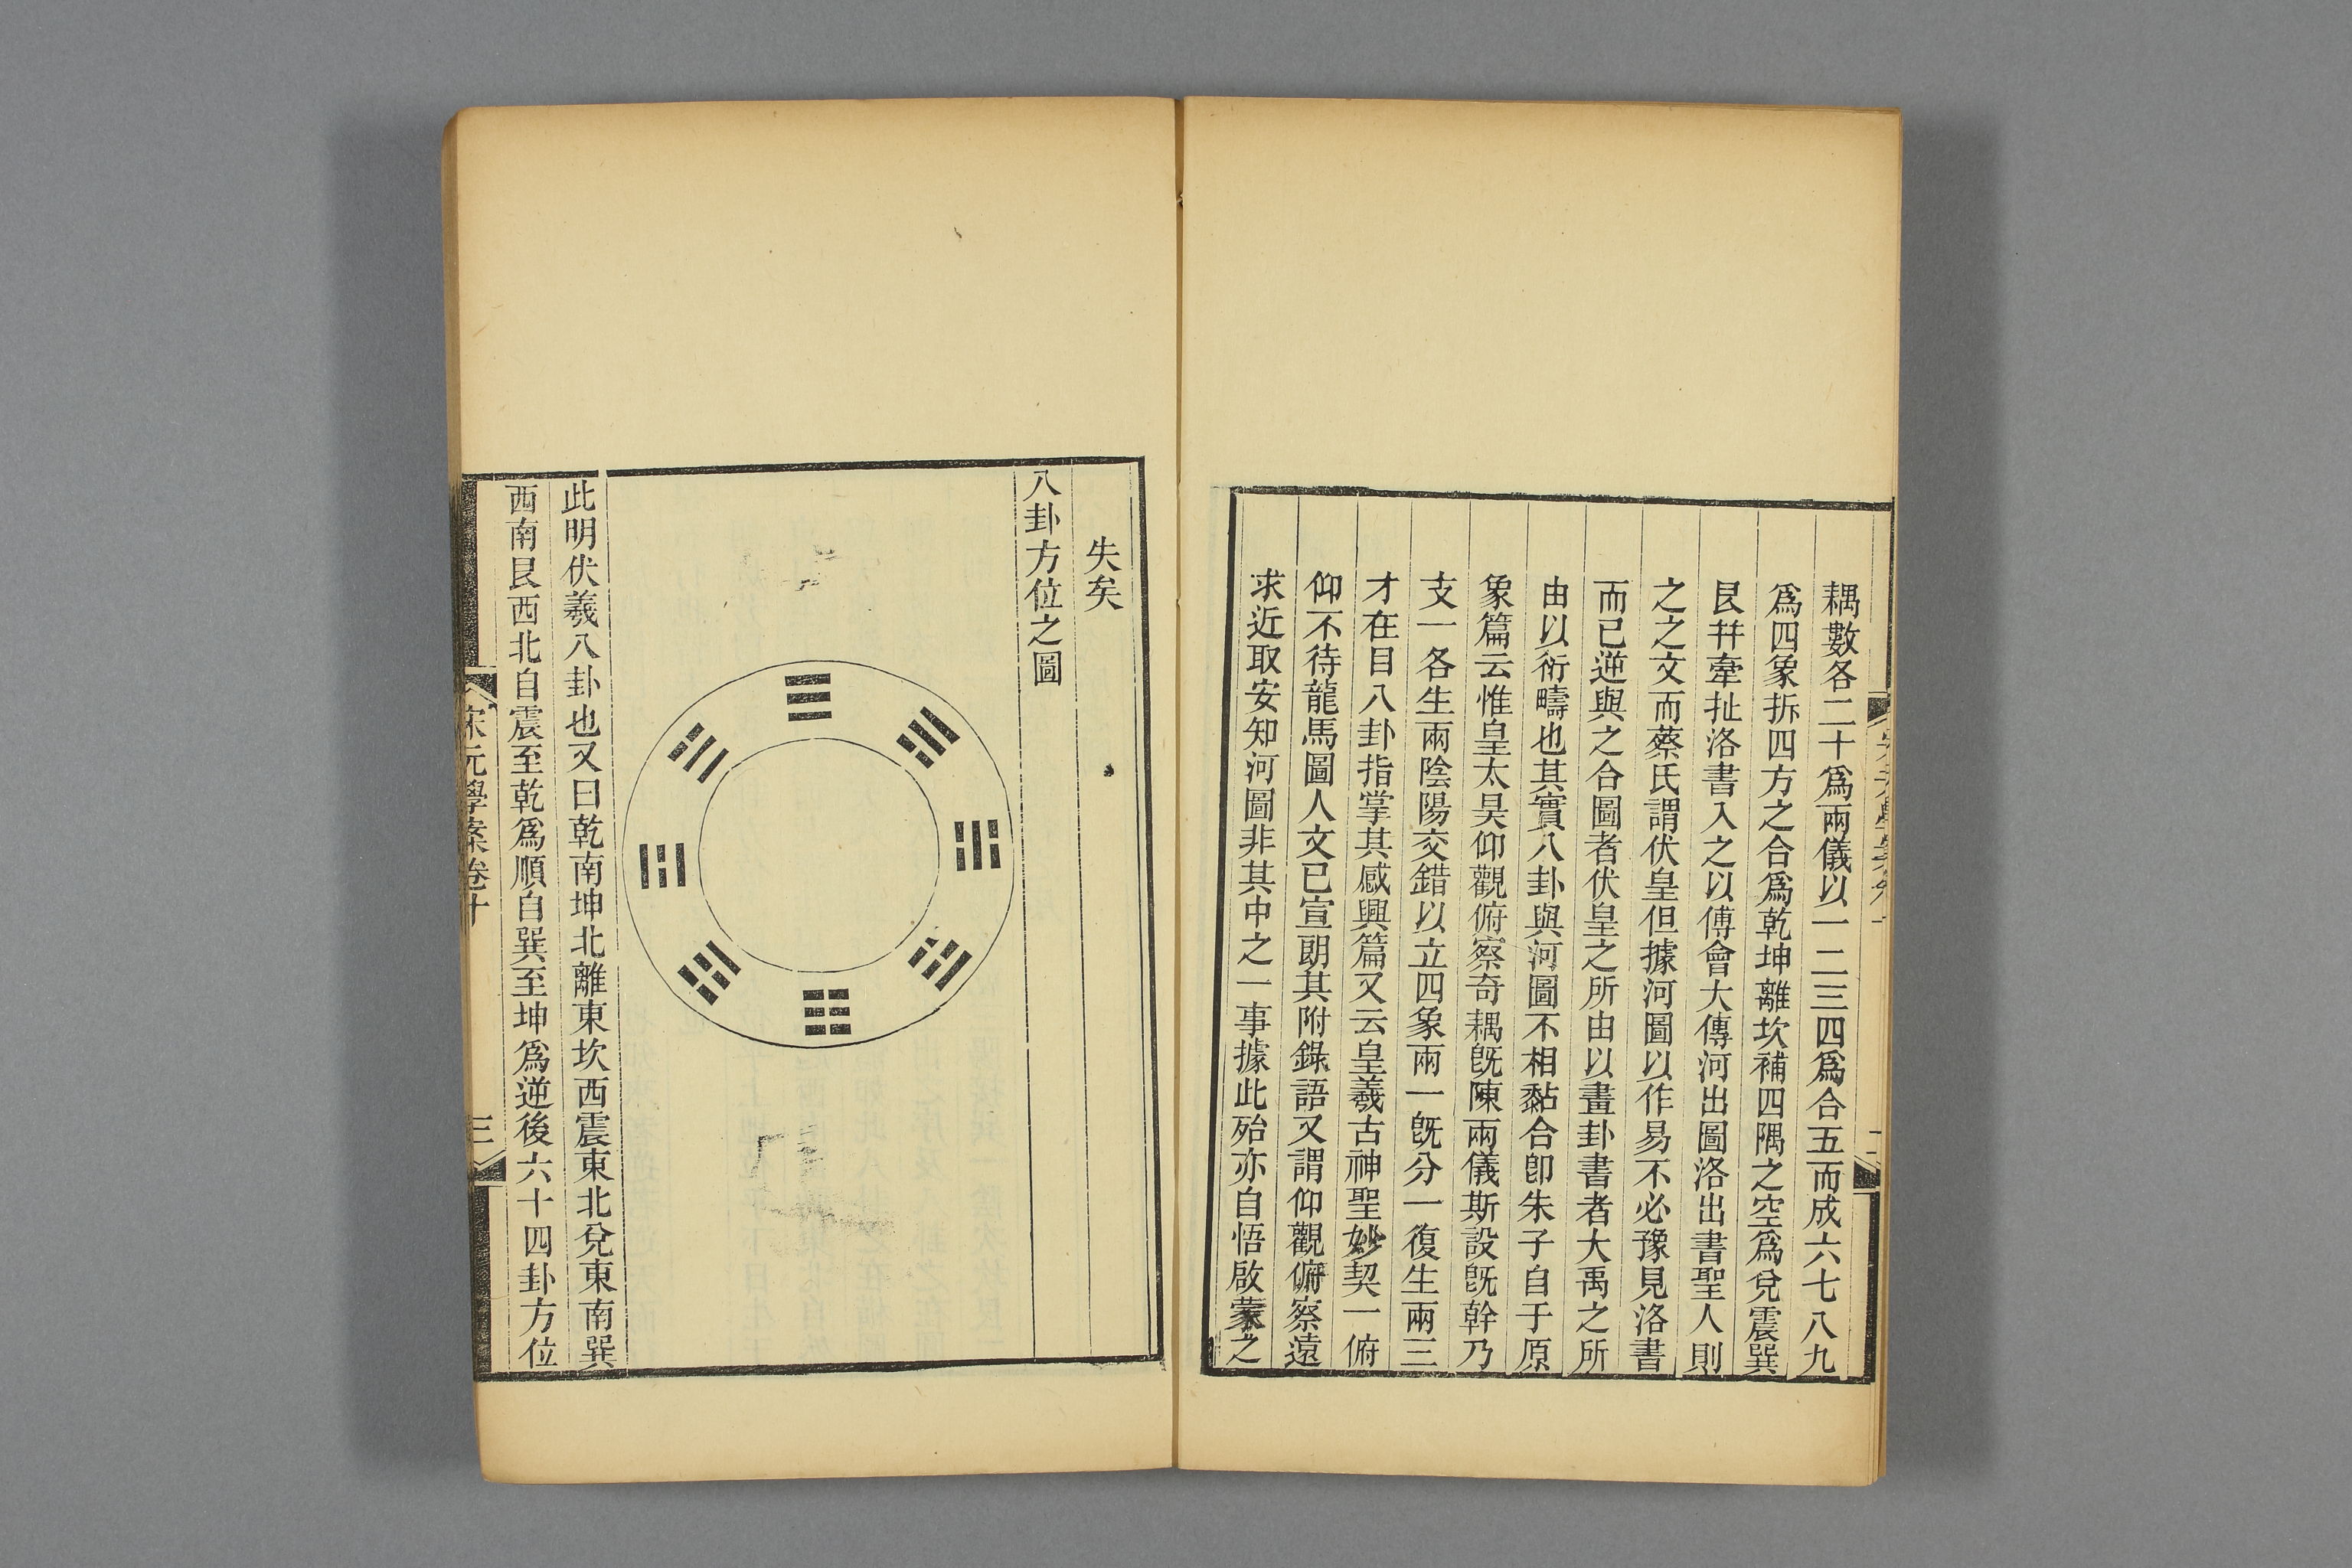 耦數各二十爲兩儀以一二三四爲合五而成六七八九
爲四象拆四方之合爲乾坤離坎補四隅之空爲兌震巽
艮幷牽扯洛書入之以傅會大傳河出圖洛出書聖人則
之之文而蔡氏謂伏皇但據河圖以作易不必豫見洛書
而已逆與之合圖者伏皇之所由以畫卦書者大禹之所
由以衍疇也其實八卦與河圖不相黏合卽朱子自于原
象篇云惟皇太昊仰觀俯察奇耦旣陳兩儀斯設旣幹乃
支一各生兩陰陽交錯以立四象兩一旣分一復生兩三
才在目八卦指掌其感興篇又云皇羲古神聖妙契一俯
仰不待龍馬圖人文已宣朗其附錄語又謂仰觀俯察遠
求近取安知河圖非其中之一事據此殆亦自悟啟蒙之
失矣
八卦方位之圖
此明伏羲八卦也又曰乾南坤北離東坎西震東北兌東南巽
西南艮西北自震至乾爲順自巽至坤爲逆後六十四卦方位
宋元學案卷十
三